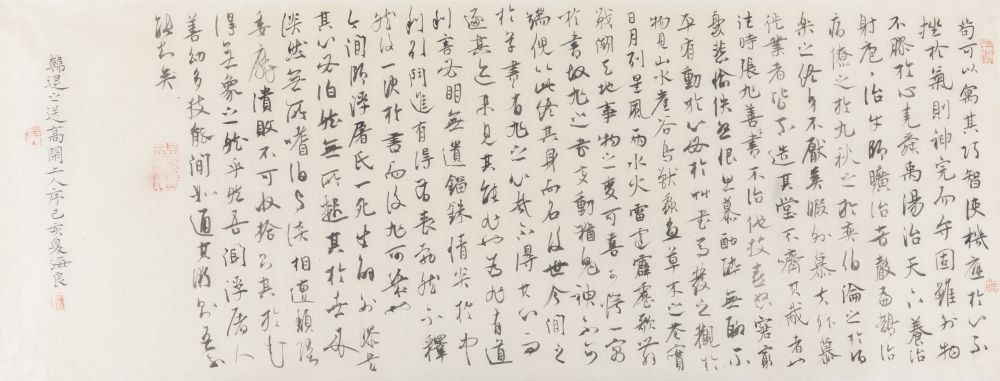 苟可以寓其巧智使機應於心不
挫於氣則神完而守固雖外物
不膠於心堯舜禹湯治天下養治
射庖丁治牛師曠治音聲扁鵲治
病僚之於丸秋之於奕伯倫之於酒
樂之終身不厭奚暇外慕夫外慕
徙業者皆不造其堂不嚌其胾者也
往時張旭善書不治他技喜怒窘窮
憂悲愉佚怨恨思慕酣醉無聊不
平有動於心必於艸書焉發之觀於
物見山水崖谷鳥獸蟲魚草木之花實
日月列星風雨水火雷霆霹靂歌舞
戰鬪天地事物之變可喜可愕一寓
於書故旭之書變動猶鬼神不可
端倪以此終其身而名後世今閒之
於草書有旭之心哉不得其心而
逐其迹未見其能旭也為旭有道
利害必明無遺錙銖情炎於中
利欲鬥進有得有喪勃然不釋
然後一決於書而後旭可幾也
今閒師浮屠氏一死生解外膠是
其心必泊然無所起其於世必
淡然無所嗜泊與淡相遭頹墮
委靡潰敗不可收拾則其於書
得無象之然乎然吾聞浮屠人
善幻多技能閒如通其術則吾不
能知矣
韓退之送高閒上人序己亥夏海良